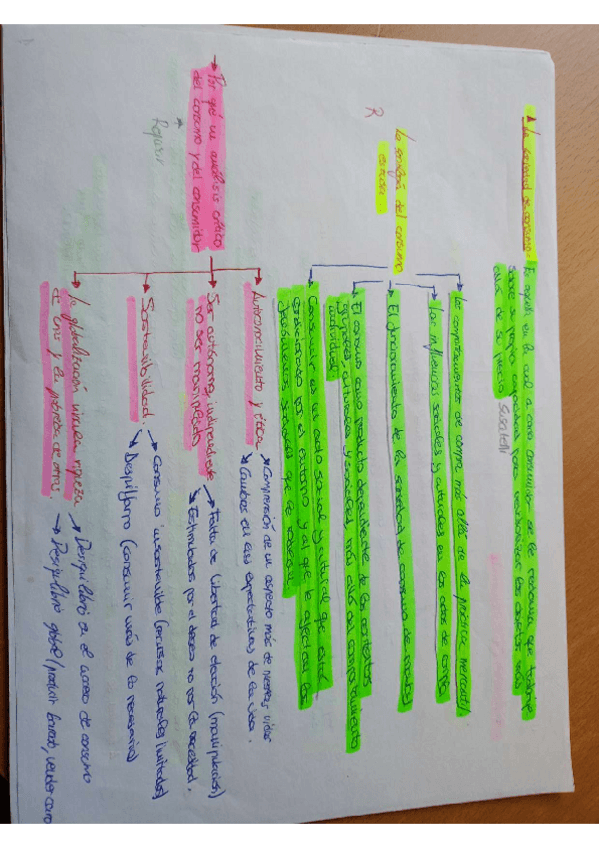 → La sociedad de consumo: Es aquella en la cual a cada consumidor se le reconoce que trabaje
sobre su propia capacidad para recolonizar los objetos más
allá de su precio Sassatelli
La sociología del consumo
estudia...
R
Los comportamientos de compra más allá de la práctica mercantil.
Las influencias sociales y culturales en los actos de compra
El funcionamiento de la sociedad de consumo de masas
El consumo como producto dependiente de los contextos
grupales, culturales y sociales, más allá del comportamiento
individual
Consumir es un acto social y cultural que está
condicionado por el entorno y al que le afectan los
fenómenos sociales que le rodean
→ Por qué un análisis crítico
del consumo y del consumidor
Repasar
Autoconocimiento y ética
→ Comprensión de un aspecto más de nuestras vidas
→ Cambios en las expectativas de la vida.
Ser autónomo, independiente
no ser manipulado
→ Falta de libertad de elección (manipulación)
→ Estimulados por el deseo no por la necesidad.
Sostenibilidad.
→ Consumo insostenible (recursos naturales limitados)
→ Despilfarro (consumir más de lo necesario)
La globalización vincula riqueza
de unos y la pobreza de otros.
→ Desequilibrio en el acceso de consumo
→ Desequilibrio global (producir barato, vender caro